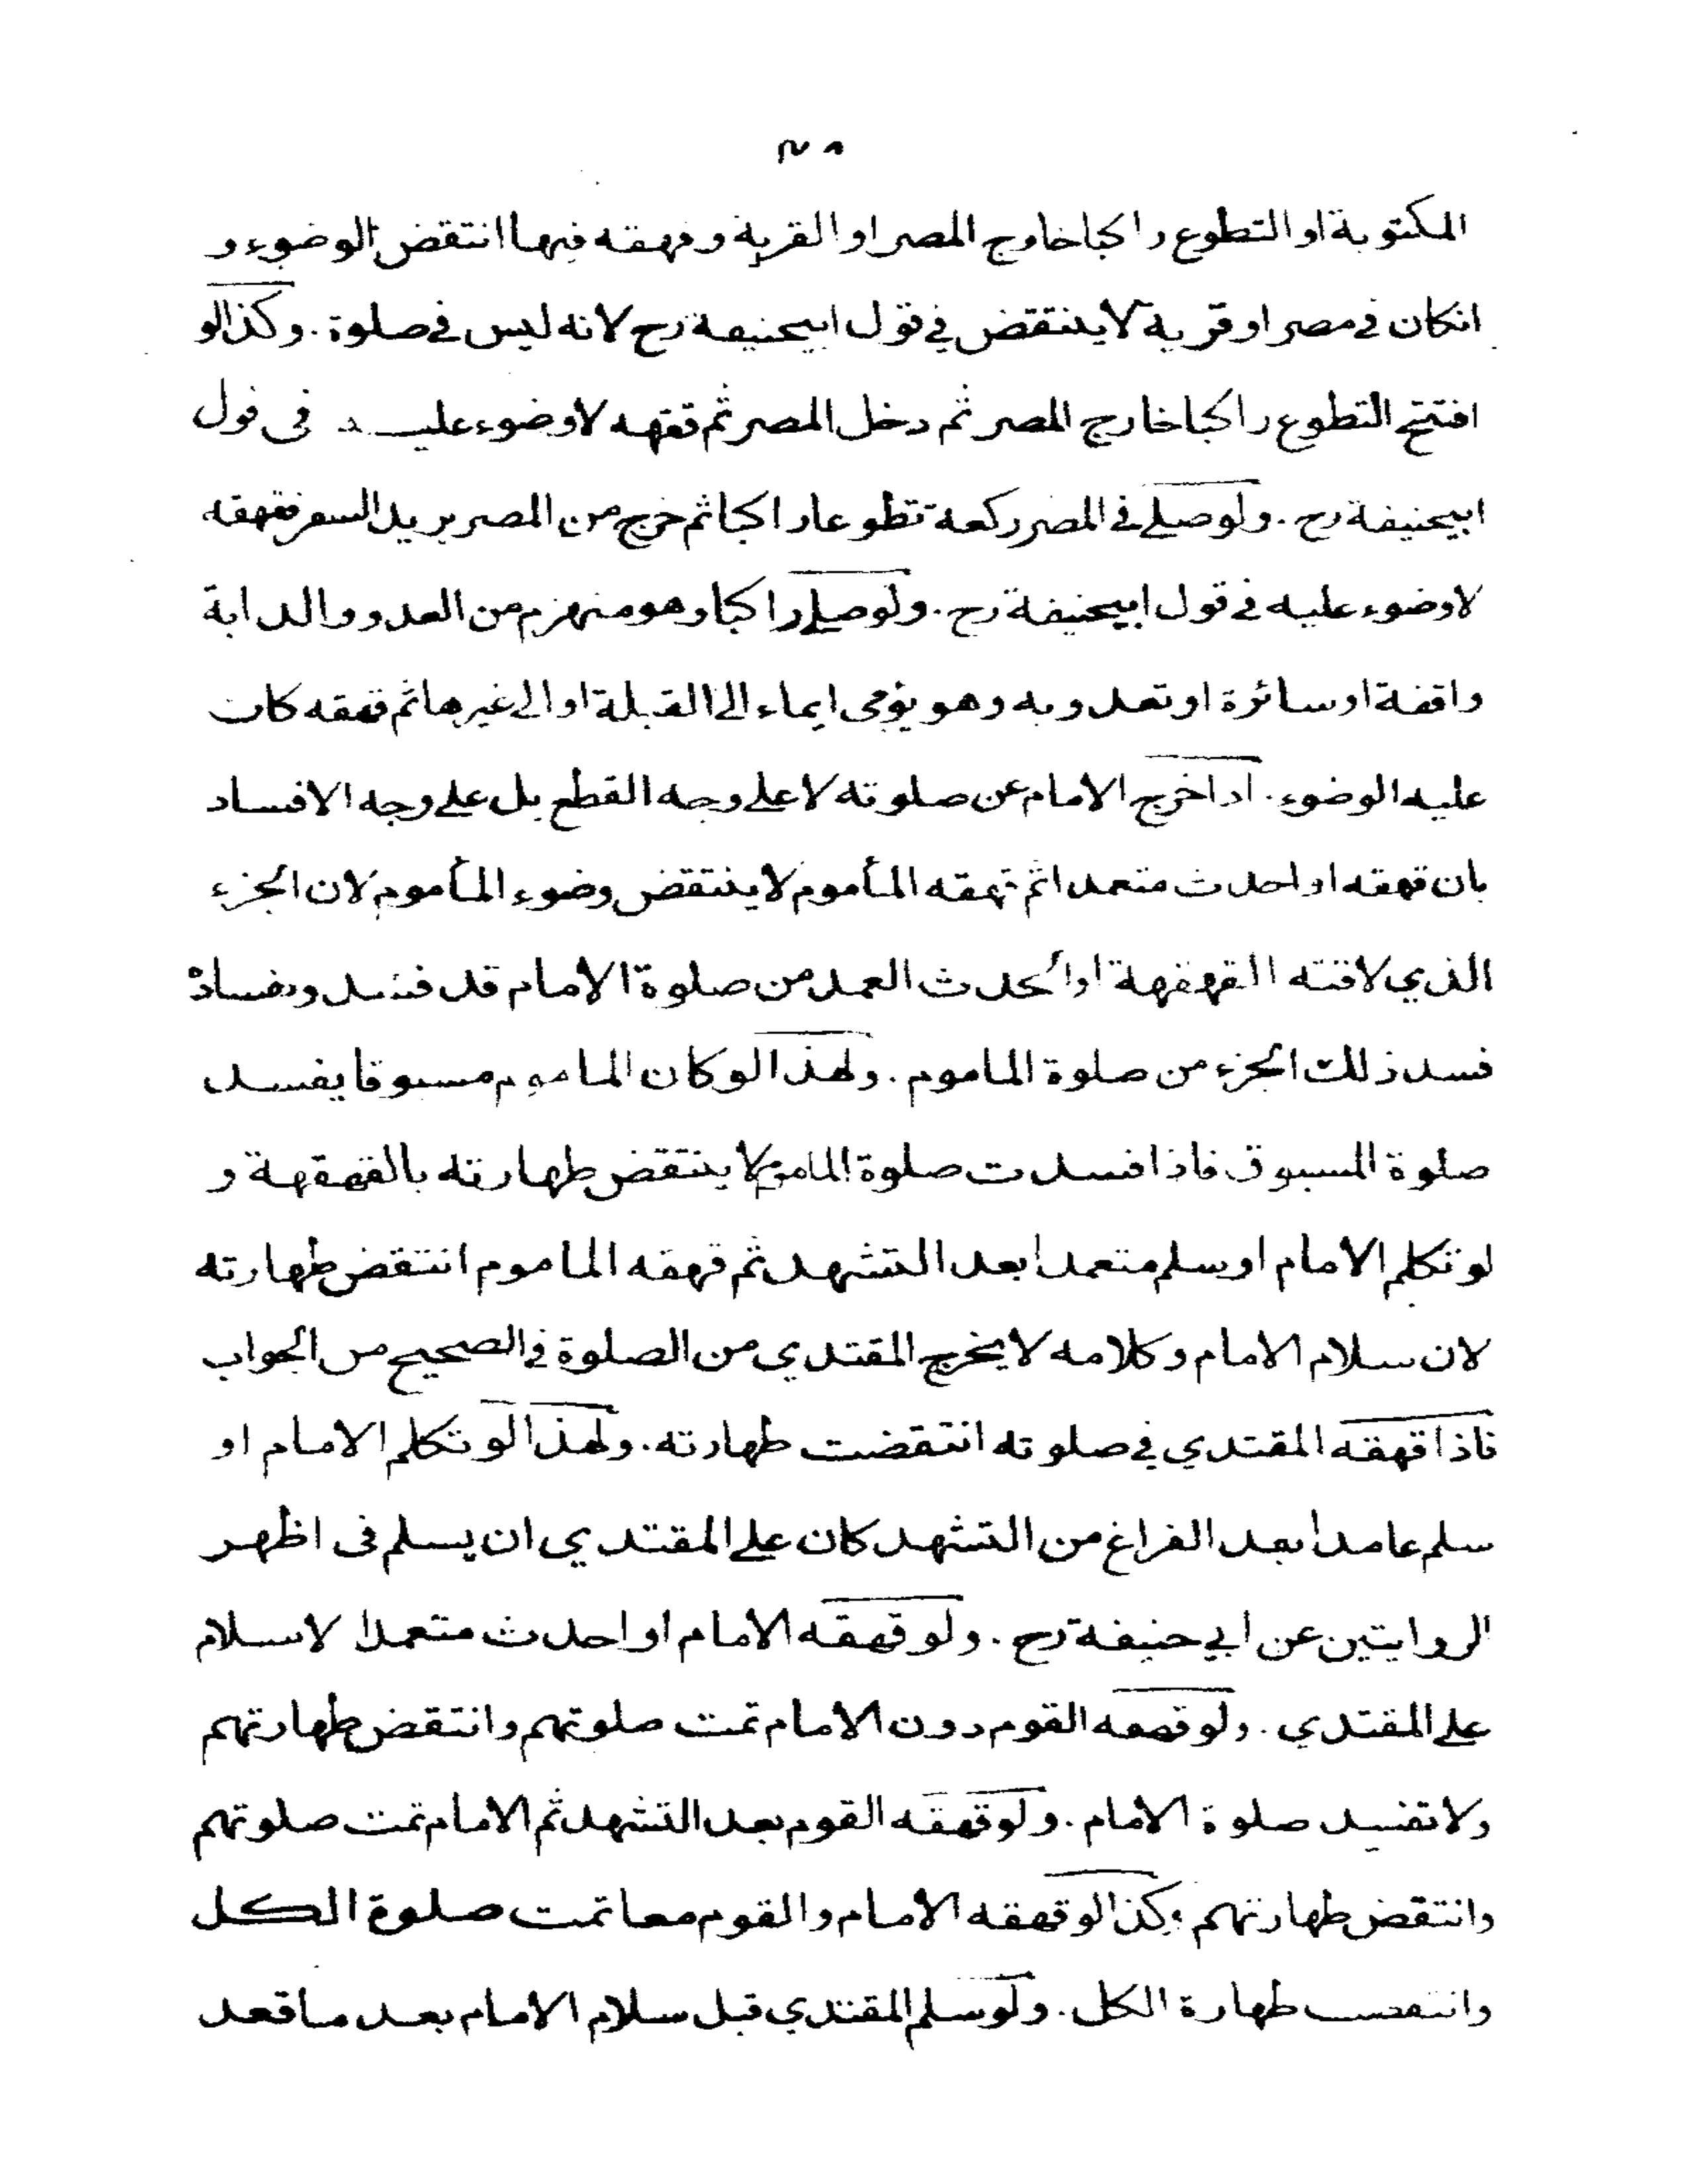 المكتوبة او التطوع راكبا خارج المصر او القرية وقهقه فيها انتقض الوضوء و
انكان في مصر او قرية لا ينتقض في قول ابيحنيفة رح لانه ليس في صلوة. وكذا لو
افتتح التطوع راكبا خارج المصر ثم دخل المصر ثم قهقه لا وضوء عليه فى قول
ابيحنيفة رح. ولو صلے في المصر ركعة تطوعا راكبا ثم خرج من المصر يريد السفر فقهقه
لا وضوء عليه في قول ابيحنيفة رح. ولو صلے راكبا وهو منهزم من العدو والدابة
واقفة او سائرة او تعدو به وهو يؤمى ايماء الے القبلة او الے غيرها ثم قهقه كان
عليه الوضوء. اذا خرج الامام عن صلوته لا علے وجه القطع بل علے وجه الافساد
بان قهقه او احدث متعمدا ثم قهقه المأموم لا ينتقض وضوء المأموم لان الجزء
الذي لاقته القهقهة او الحدث العمد من صلوة الامام قد فسد وبفساده
فسد ذلك الجزء من صلوة الماموم. ولهذا لو كان الماموم مسبوقا يفسد
صلوة المسبوق فاذا فسدت صلوة الماموم لا ينتقض طهارته بالقهقهة و
لو تكلم الامام او سلم متعمدا بعد التشهد ثم قهقه الماموم انتقض طهارته
لان سلام الامام وكلامه لا يخرج المقتدي من الصلوة في الصحيح من الجواب
فاذا قهقه المقتدي في صلوته انتقضت طهارته. ولهذا لو تكلم الامام او
سلم عامدا بعد الفراغ من التشهد كان علے المقتدي ان يسلم فى اظهر
الروايتين عن ابي حنيفة رح. ولو قهقه الامام او احدث متعمدا لا سلام
علے المقتدي. ولو قهقه القوم دون الامام تمت صلوتهم وانتقض طهارتهم
ولا تفسد صلوة الامام. ولو قهقه القوم بعد التشهد ثم الامام تمت صلوتهم
وانتقض طهارتهم وكذا لو قهقه الامام والقوم معا تمت صلوة الكل
وانتقضت طهارة الكل. ولو سلم المقتدي قبل سلام الامام بعد ما قعد